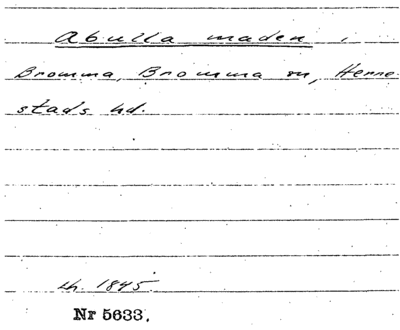 Abulla maden,
Bromma, Bromma sn, Herre-
stads hd.
1845.
Nr 5633.